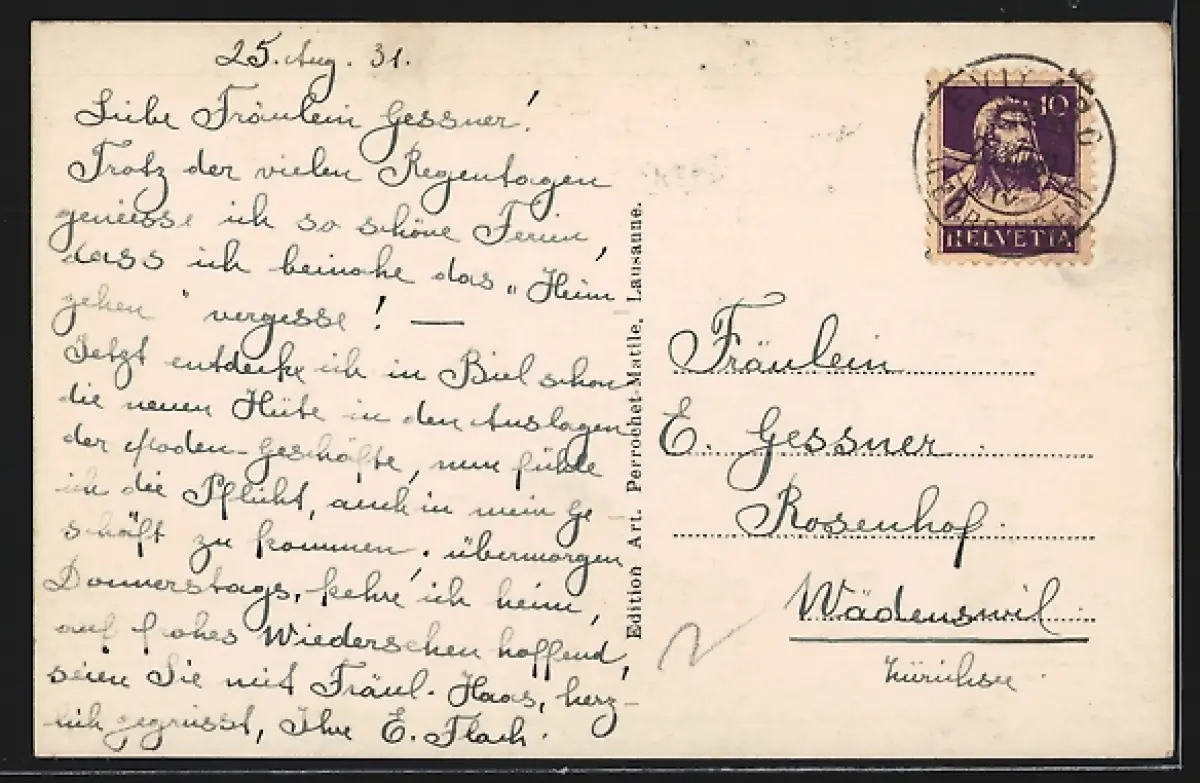 25. Aug. 31.
Liebe Fräulein Gessner!
Trotz der vielen Regentagen
geniesse ich so schöne Ferien,
dass ich beinahe das „Heim
gehen" vergesse! —
Jetzt entdecke ich in Biel schon
die neuen Hüte in den Auslagen
der Moden-Geschäfte, nun fühle
ich die Pflicht, auch in mein Ge-
schäft zu kommen; übermorgen
Donnerstags, kehre ich heim,
auf frohes Wiedersehen hoffend,
seien Sie mit Fräul. Haas, herz-
lich gegrüsst, Ihre E. Flach.
Edition Art. Perrochet-Matile, Lausanne.
10
HELVETIA
Fräulein
E. Gessner
Rosenhof
Wädenswil
Zürichsee